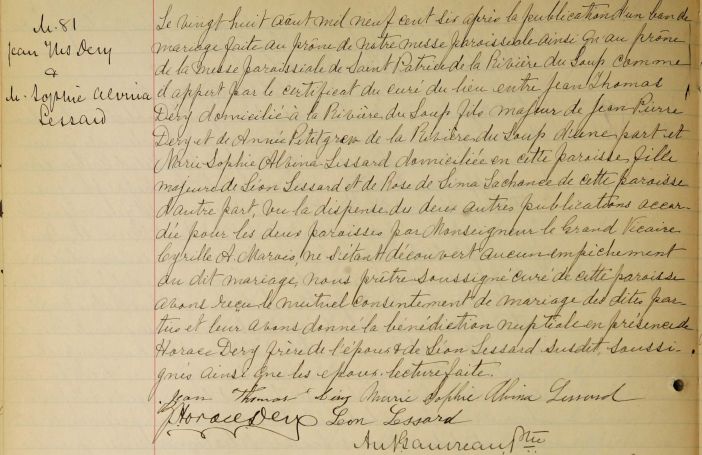 M. 81
Jean Ths Dery
&
M. Sophie Alvina
Lessard
Le vingt huit août mil neuf cent six après la publication d'un ban de
mariage faite au prône de notre messe paroissiale ainsi qu'au prône
de la messe paroissiale de Saint Patrice de la Rivière du Loup comme
d'appert par le certificat du curé du lieu entre Jean Thomas
Déry domicilié à la Rivière du Loup fils majeur de Jean Pierre
Dery et de Annie Petitgrew de la Rivière du Loup d'une part et
Marie Sophie Alvina Lessard domiciliée en cette paroisse, fille
majeure de Léon Lessard et de Rose de Lima Lachance de cette paroisse
d'autre part, vu la dispense des deux autres publications accor-
dée pour les deux paroisses par Monseigneur le Grand Vicaire
Cyrille A. Marois, ne s'étant découvert aucun empêchement
au dit mariage, nous prêtre soussigné curé de cette paroisse
avons reçu le mutuel consentement de mariage des dites par-
ties et leur avons donné la bénédiction nuptiale en présence de
Horace Dery frère de l'époux & de Léon Lessard susdit, soussi-
gnés ainsi que les époux. lecture faite.
Jean Thomas Dery Marie Sophie Alvina Lessard
Horace Dery Leon Lessard
Ptre